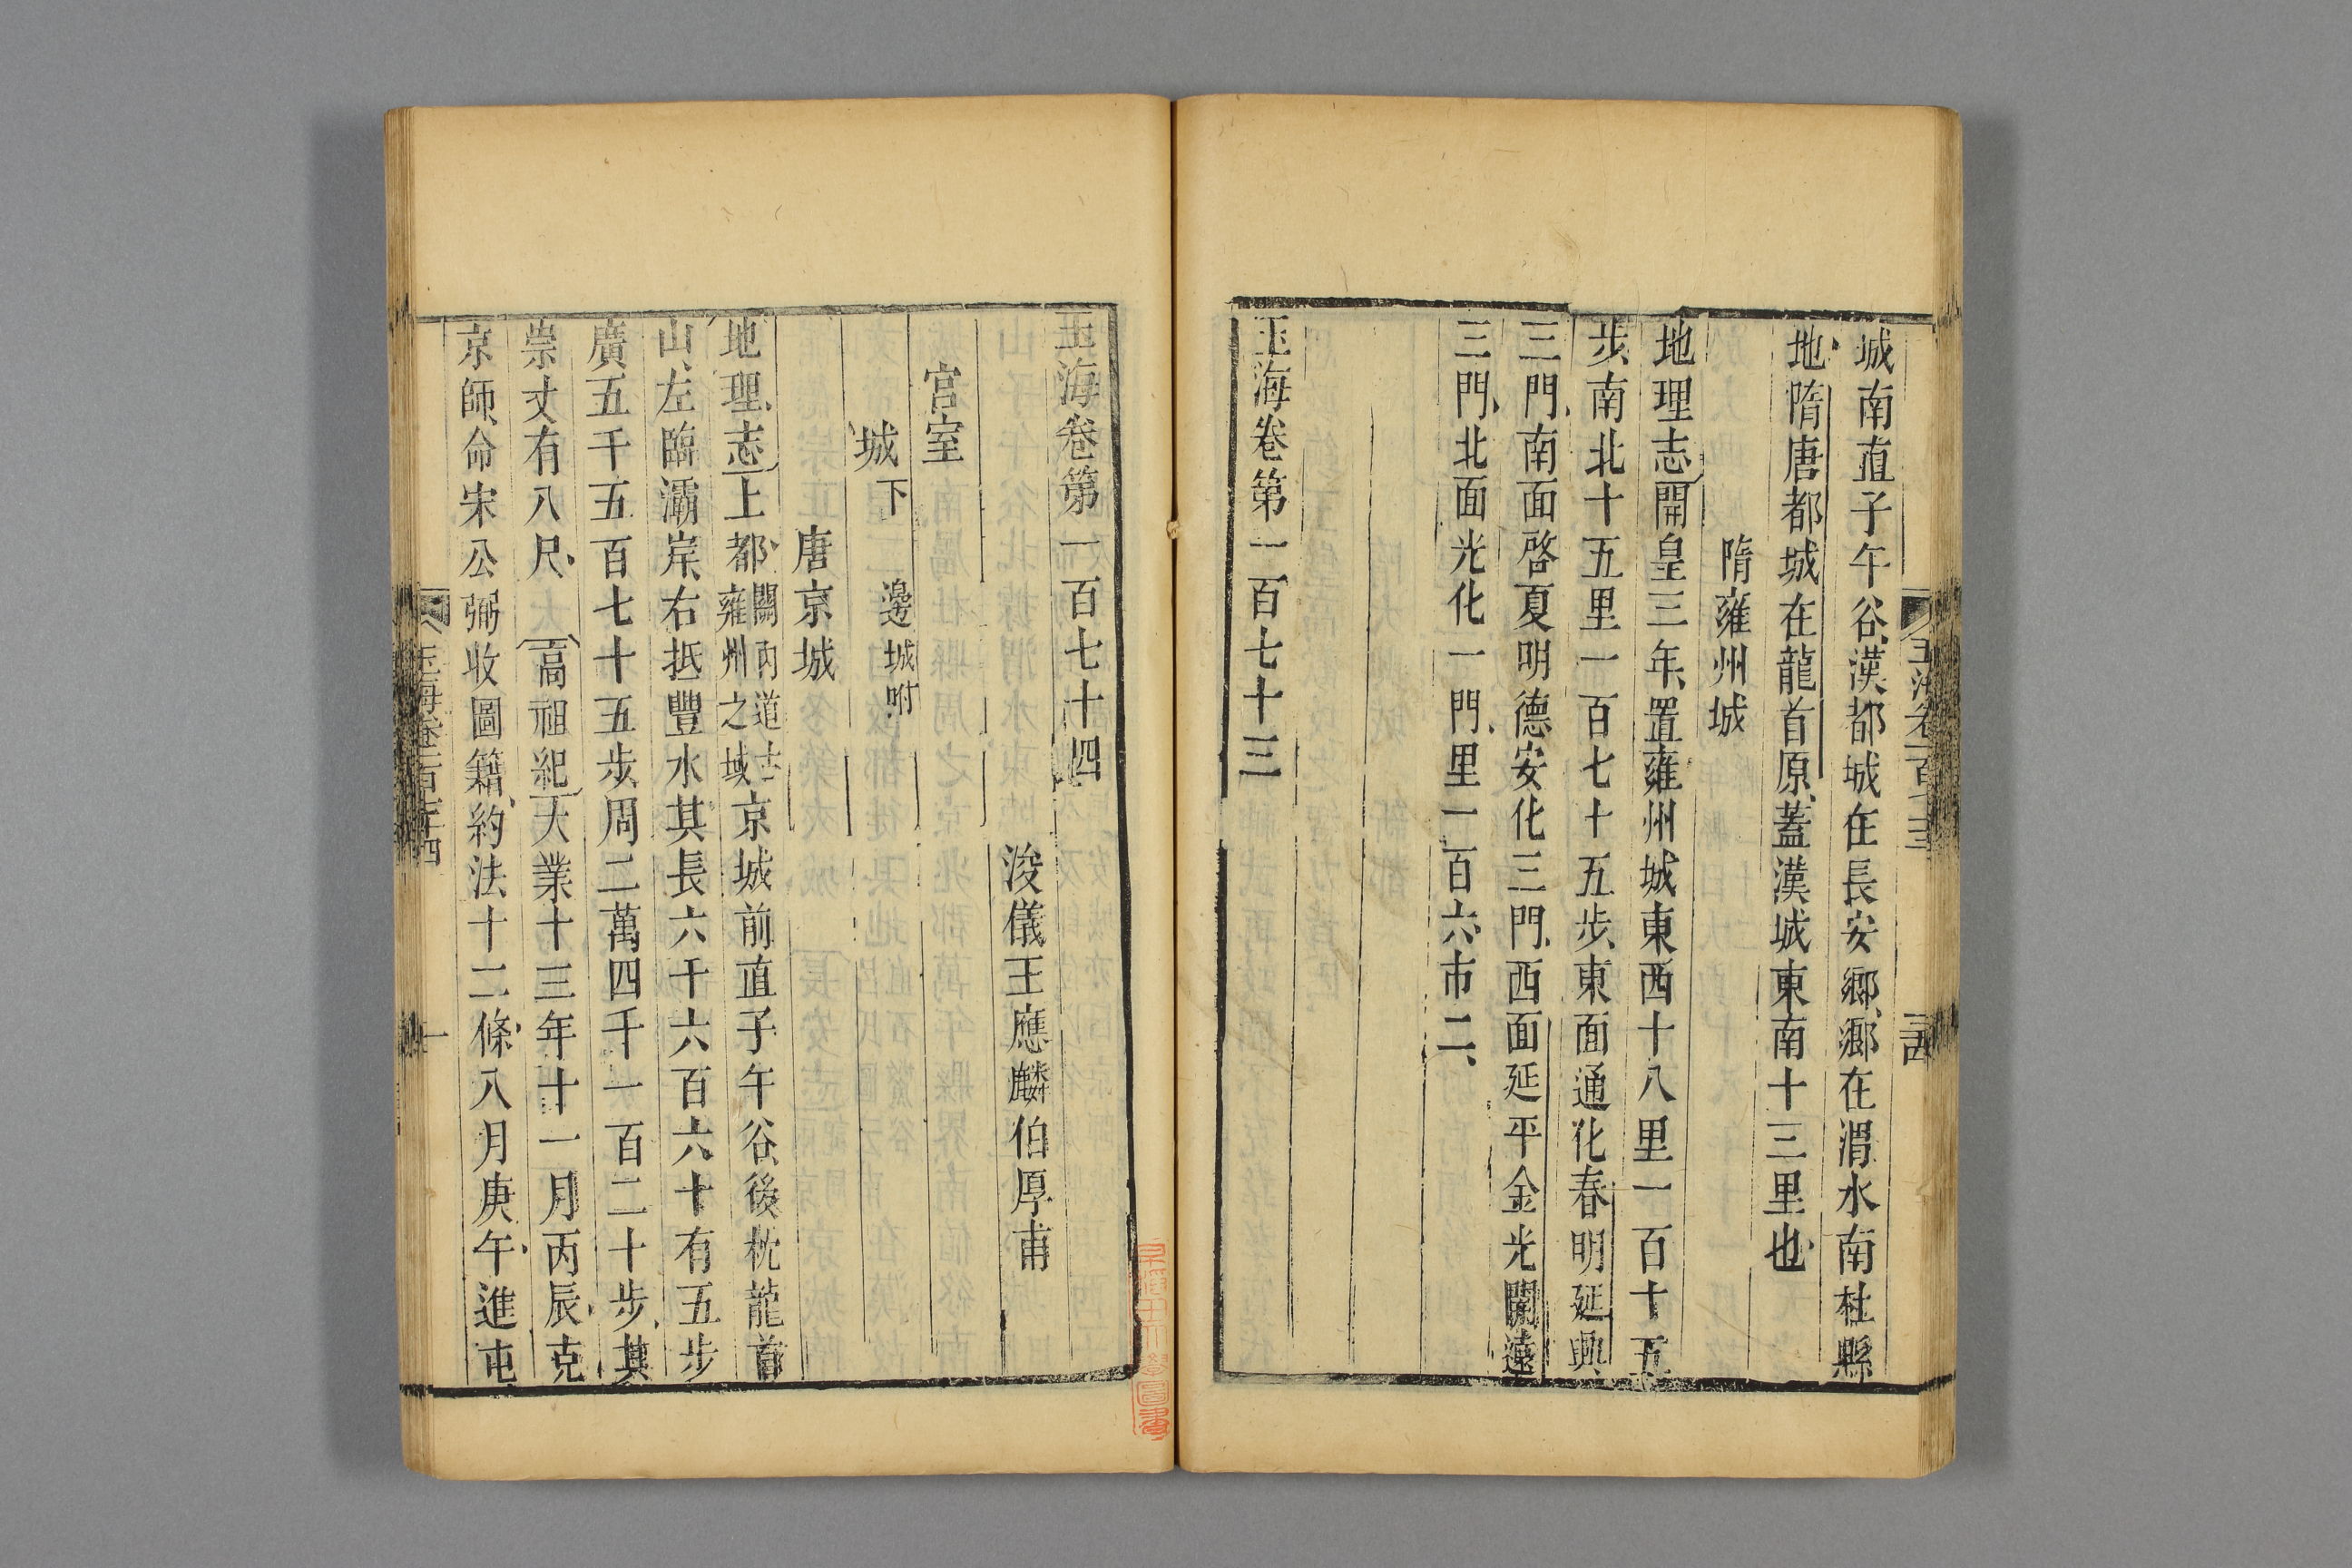 城南直子午谷漢都城在長安鄉鄉在渭水南杜縣
地隋唐都城在龍首原蓋漢城東南十三里也
隋雍州城
地理志開皇三年置雍州城東西十八里一百十五
步南北十五里一百七十五步東面通化春明延興
三門南面啓夏明德安化三門西面延平金光開遠
三門北面光化一門里一百六市二
玉海卷第一百七十三
玉海卷第一百七十四
浚儀王應麟伯厚甫
宮室
城下 邊城附
唐京城
地理志上都關內道古雍州之域京城前直子午谷後枕龍首
山左臨灞岸右抵豐水其長六千六百六十有五步
廣五千五百七十五步周二萬四千一百二十步其
崇丈有八尺高祖紀大業十三年十一月丙辰克
京師命宋公弼收圖籍約法十二條八月庚午進屯
玉海卷一百七十四
一